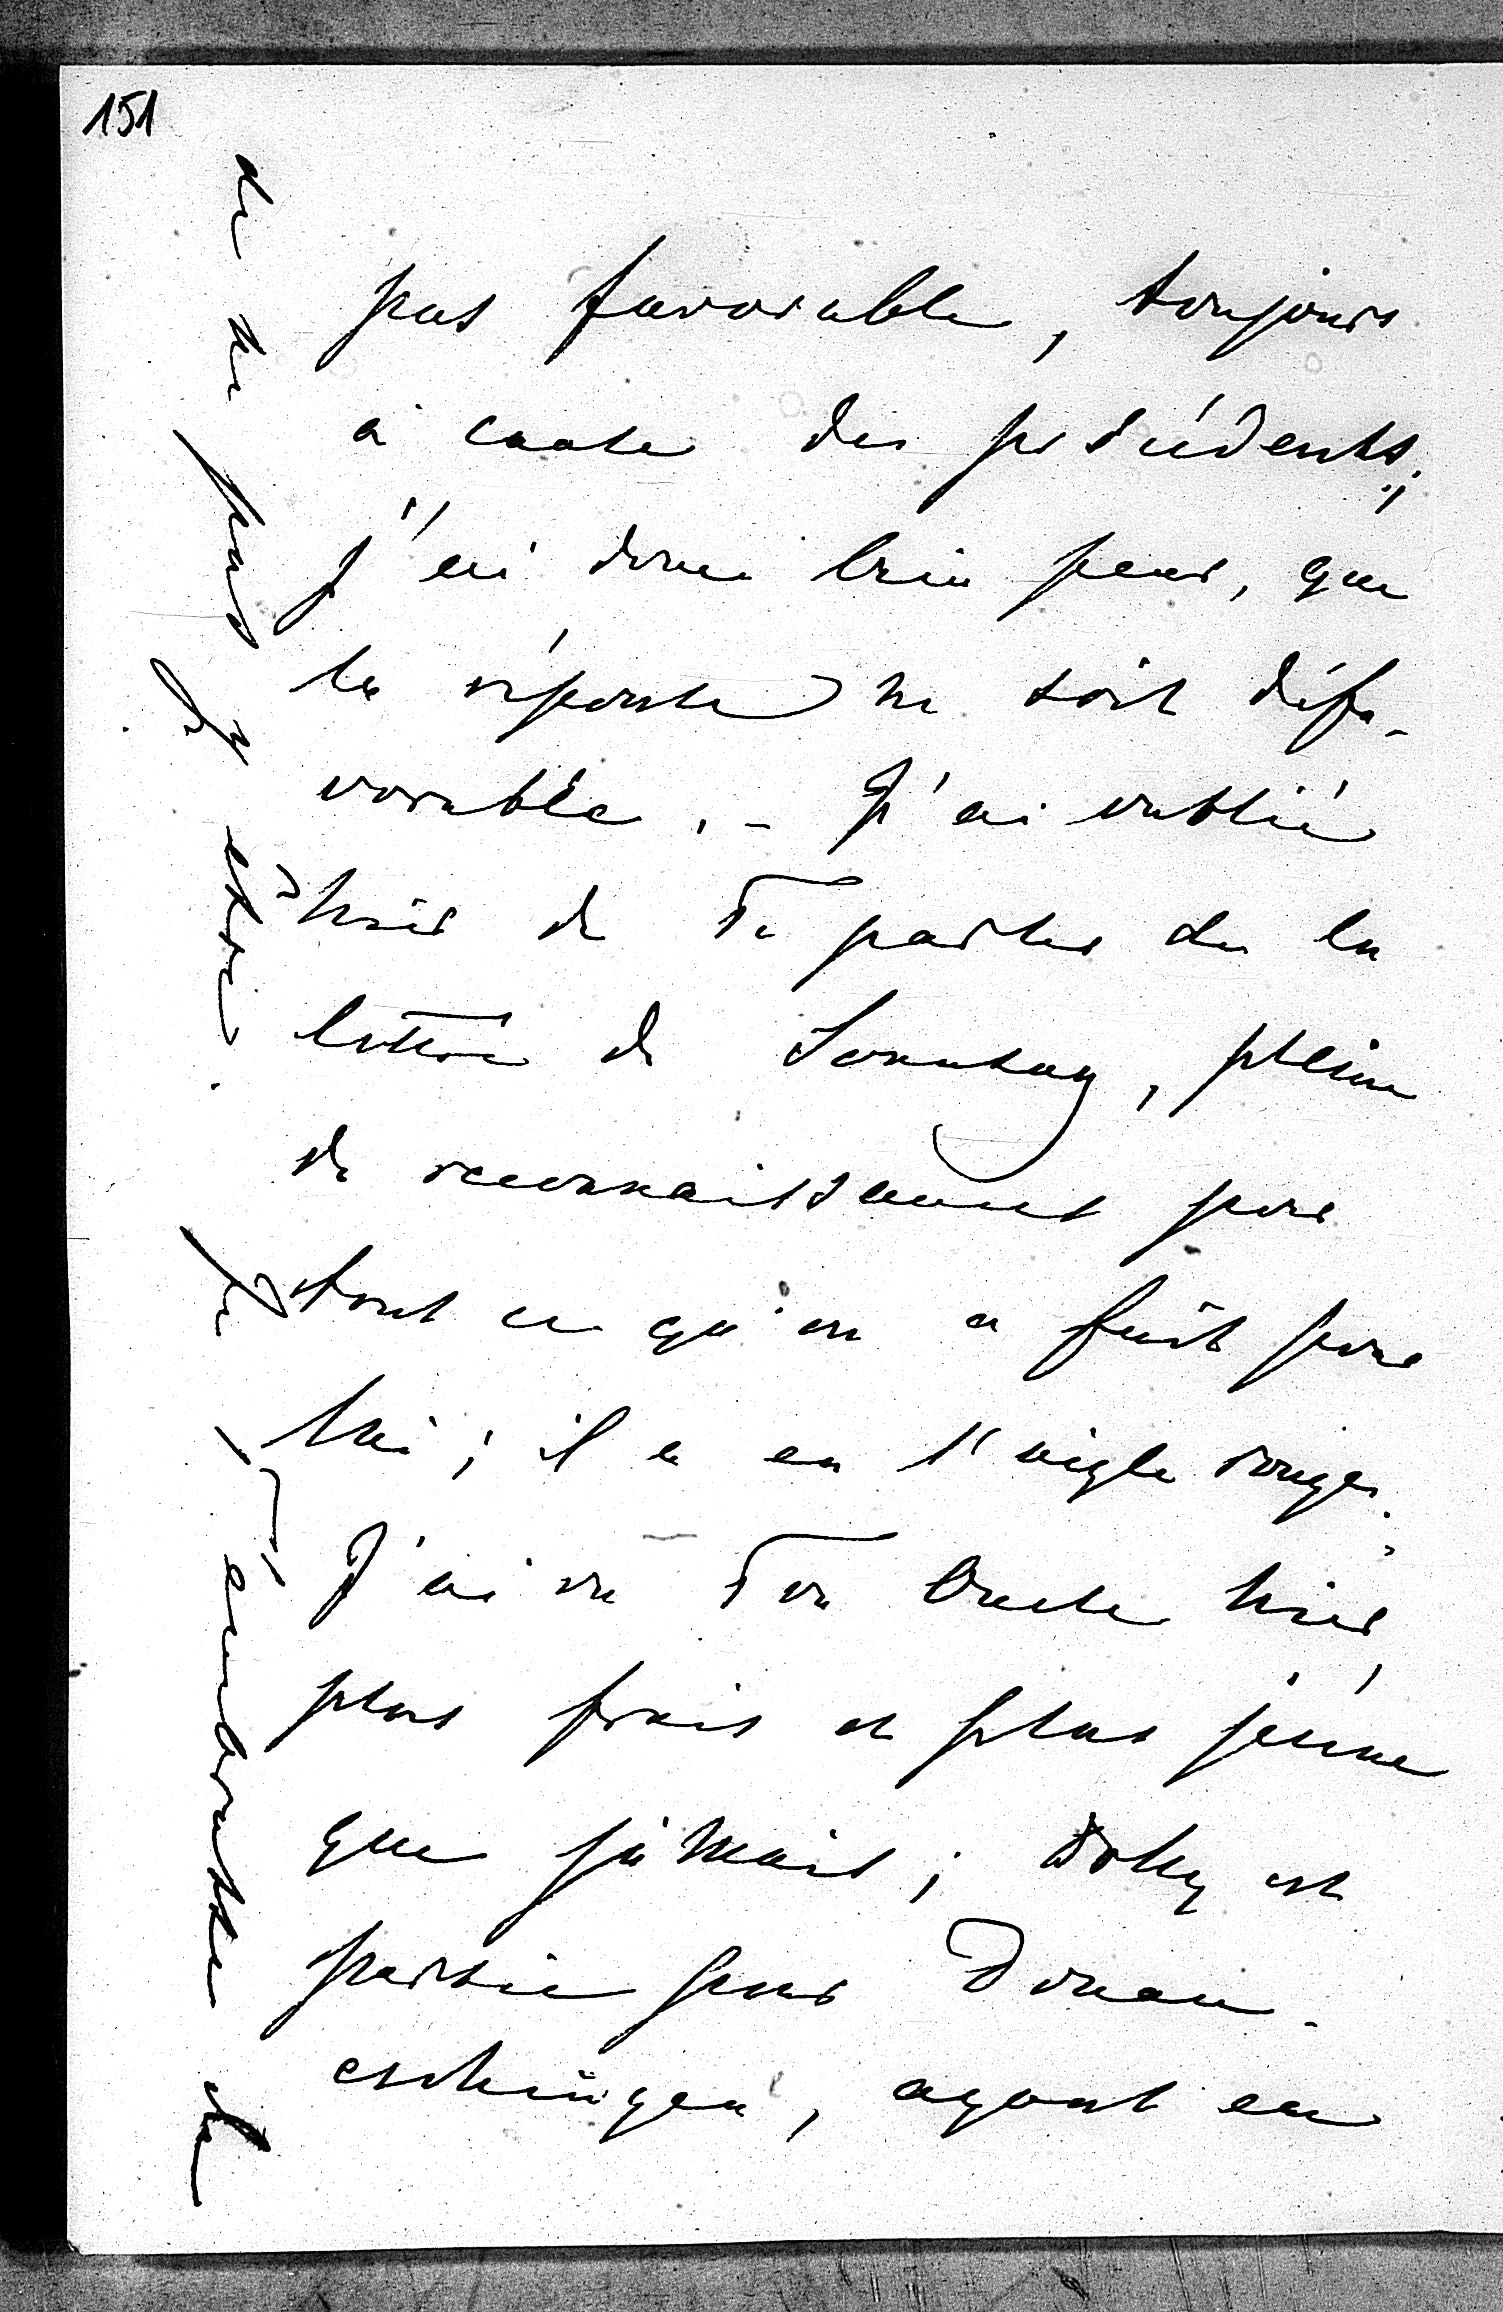 151
pas favorable, toujours
à cause des précédents;
j'ai donc bien peur, que
la réponse ne soit défa-
vorable. - J'ai oublié
hier de Te parler de la
lettre de Sonntag, pleine
de reconnaissance pour
tout ce qu'on a fait pour
lui; il a eu l'aigle rouge.
J'ai vu Ton Oncle hier,
plus frais et plus jeune
que jamais; Dolly est
partie pour Donau-
eschingen, ayant eu
de ne pas y être.
Je T'embrasse de